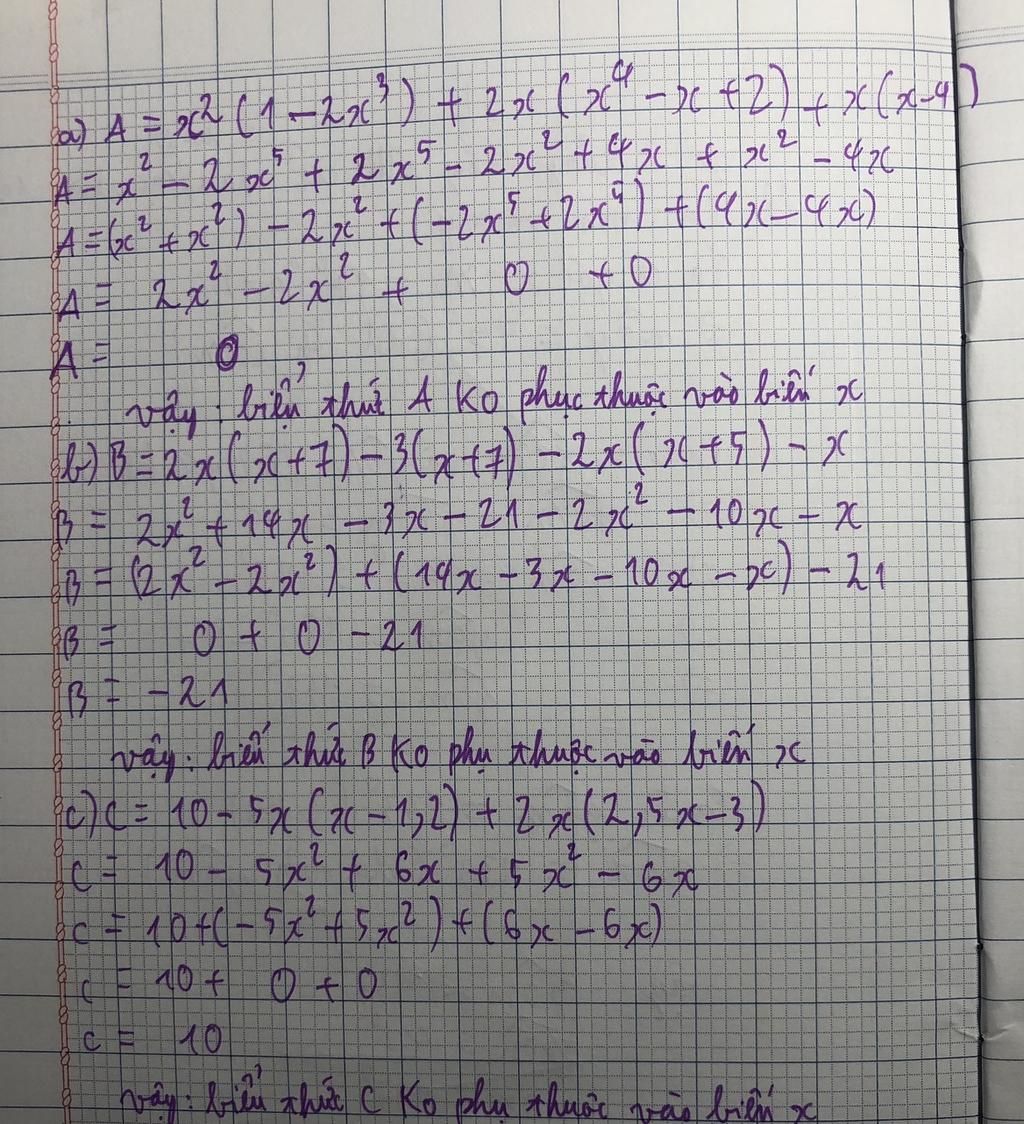 a) A = x² (1 - 2x³) + 2x (x⁴ - x + 2) + x(x-4)
A = x² - 2x⁵ + 2x⁵ - 2x² + 4x + x² - 4x
A = (x² + x²) - 2x² + (-2x⁵ + 2x⁵) + (4x - 4x)
A = 2x² - 2x² + 0 + 0
A = 0
vậy: biểu thứ A Ko phục thuộc vào biến x
b) B = 2x(x+7) - 3(x+7) - 2x(x+5) - x
B = 2x² + 14x - 3x - 21 - 2x² - 10x - x
B = (2x² - 2x²) + (14x - 3x - 10x - x) - 21
B = 0 + 0 - 21
B = -21
vậy: biến thức B Ko phụ thuộc vào biến x
c) C = 10 - 5x(x - 1,2) + 2x(2,5x - 3)
C = 10 - 5x² + 6x + 5x² - 6x
C = 10 + (-5x² + 5x²) + (6x - 6x)
C = 10 + 0 + 0
C = 10
vậy: biểu thức C Ko phụ thuộc vào biến x